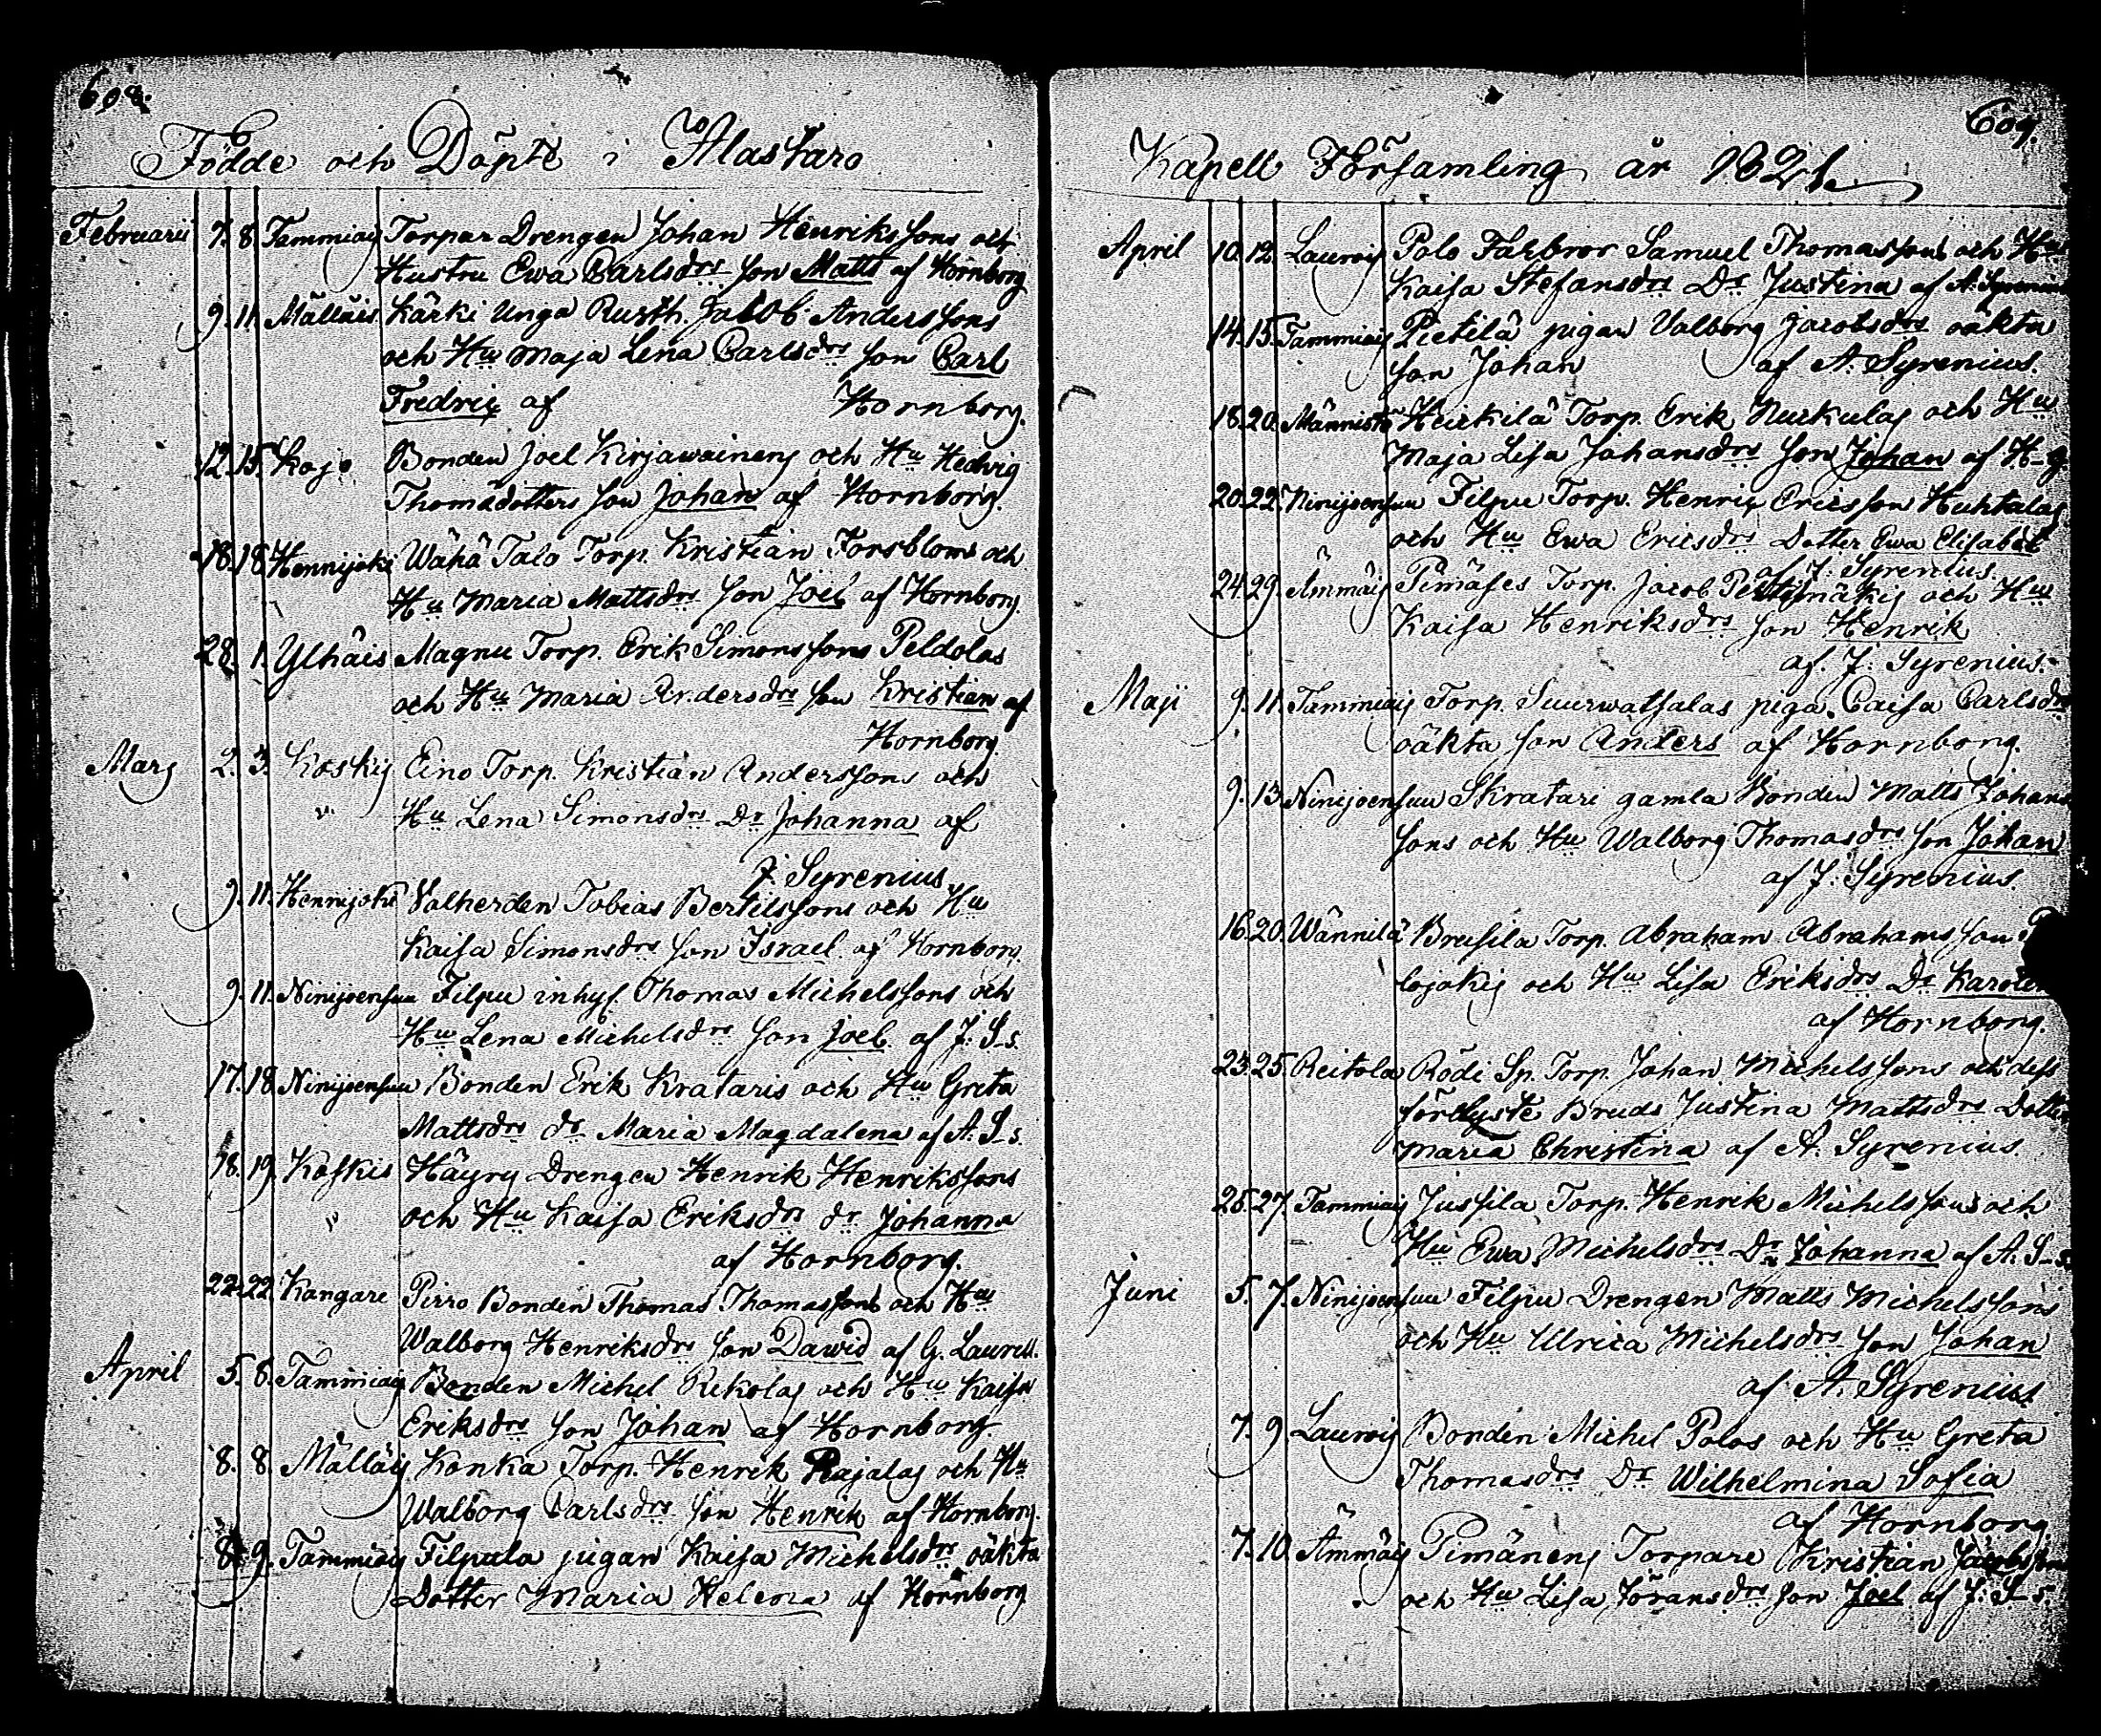 608.
Födde och Döpte i Alastaro
Februarii 7. 8. Tammiais Torpar Drengen Johan Henrikssons och
Hustru Ewa Carlsdrs Son Matts af Hornborg
9. 11. Mälläis Kärki Unga Rusth. Jacob Anderssons
och Hu Maja Lena Carlsdrs Son Carl
Fredric af Hornborg.
12. 15. Kojo Bonden Joel Kirjawainens och Hu Hedvig
Thomædotters Son Johan af Hornborg.
18. 18. Hennijoki Wähä Talo Torp. Kristian Forsbloms och
Hu Maria Mattsdrs Son Joel af Hornborg.
28. 1. Ylhäis Magnu Torp. Erik Simonssons Peldolas
och Hu Maria Andersdrs Son Kristian af
Hornborg.
Mars 2. 3. Koskis Eino Torp. Kristian Anderssons och
" Hu Lena Simonsdrs Dr Johanna af
J. Syrenius.
9. 11. Hennijoki Valherden Tobias Bertilssons och Hu
Kaisa Simonsdrs Son Israel af Hornborg.
9. 11. Ninijoensuu Filpu inhys. Thomas Michelssons och
Hu Lena Michelsdrs Son Joel af J: S-s.
17. 18. Ninijoensuu Bonden Erik Krataris och Hu Greta
Mattsdrs dr Maria Magdalena af A. S-s.
18. 19. Koskis Häyry Drengen Henrik Henrikssons
" och Hu Kaisa Eriksdrs dr Johanna
af Hornborg.
22. 22. Kangare Pirro Bonden Thomas Thomassons och Hu
Walborg Henriksdrs Son Dawid af G. Laurell.
April 5. 8. Tammiais Bonden Michel Rekolas och Hu Kaisa
Eriksdrs Son Johan af Hornborg.
8. 8. Mälläis Konka Torp. Henrik Rajalas och Hu
Walborg Carlsdrs Son Henrik af Hornborg.
8. 9. Tammiais Filpula pigan Kaisa Michelsdrs oäkta
Dotter Maria Helena af Hornborg
609.
Kapell Församling år 1821.
April 10. 12. Laurois Polo Farbror Samuel Thomassons och Hu
Kaisa Stefansdrs Dr Justina af A: Syrenius
14. 15. Tammiais Pietilä pigan Valborg Jacobsdrs oäkta
Son Johan af A. Syrenius.
18. 20. Männistö Heikkilä Torp. Erik Nuckulas och Hu
Maja Lisa Johansdrs Son Johan af H-g.
20. 22. Ninijoensuu Filpu Torp. Henric Ericsson Huhtalas
och Hu Ewa Ericsdrs Dotter Ewa Elisabet
af J: Syrenius.
24. 29. Ämmäis Pimäses Torp. Jacob och Hu
Kaisa Henriksdrs Son Henrik
af. J: Syrenius.
Maji 9. 11. Tammiais Torp. Suurwatsalas piga Caisa Carlsdrs
oäkta Son Anders af Hornborg.
9. 13. Ninijoensuu Skratari gamla Bonden Matts Johans
sons och Hu Walborg Thomasdrs Son Johan
af J: Syrenius.
16. 20. Wännilä Breisila Torp. Abraham Abrahamsson
lojokis och Hu Lisa Eriksdrs Dr
af Hornborg.
23. 25. Reitola Rödi Sp. Torp. Johan Michelssons och dess
förelyste Bruds Justina Mattsdrs Dotter
Maria Christina af A. Syrenius.
25. 27. Tammiais Jussila Torp. Henrik Michelssons och
Hu Ewa Michelsdrs Dr Johanna af A. S-s.
Juni 5. 7. Ninijoensuu Filpu Drengen Matts Michelssons
och Hu Ulrica Michelsdrs Son Johan
af A. Syrenius.
7. 9. Laurois Bonden Michel Polos och Hu Greta
Thomasdrs Dr Wilhelmina Sofia
af Hornborg.
7. 10. Ämmäis Pimänens Torpare Kristian
och Hu Lisa Jöransdrs Son Joel af J: S-s.